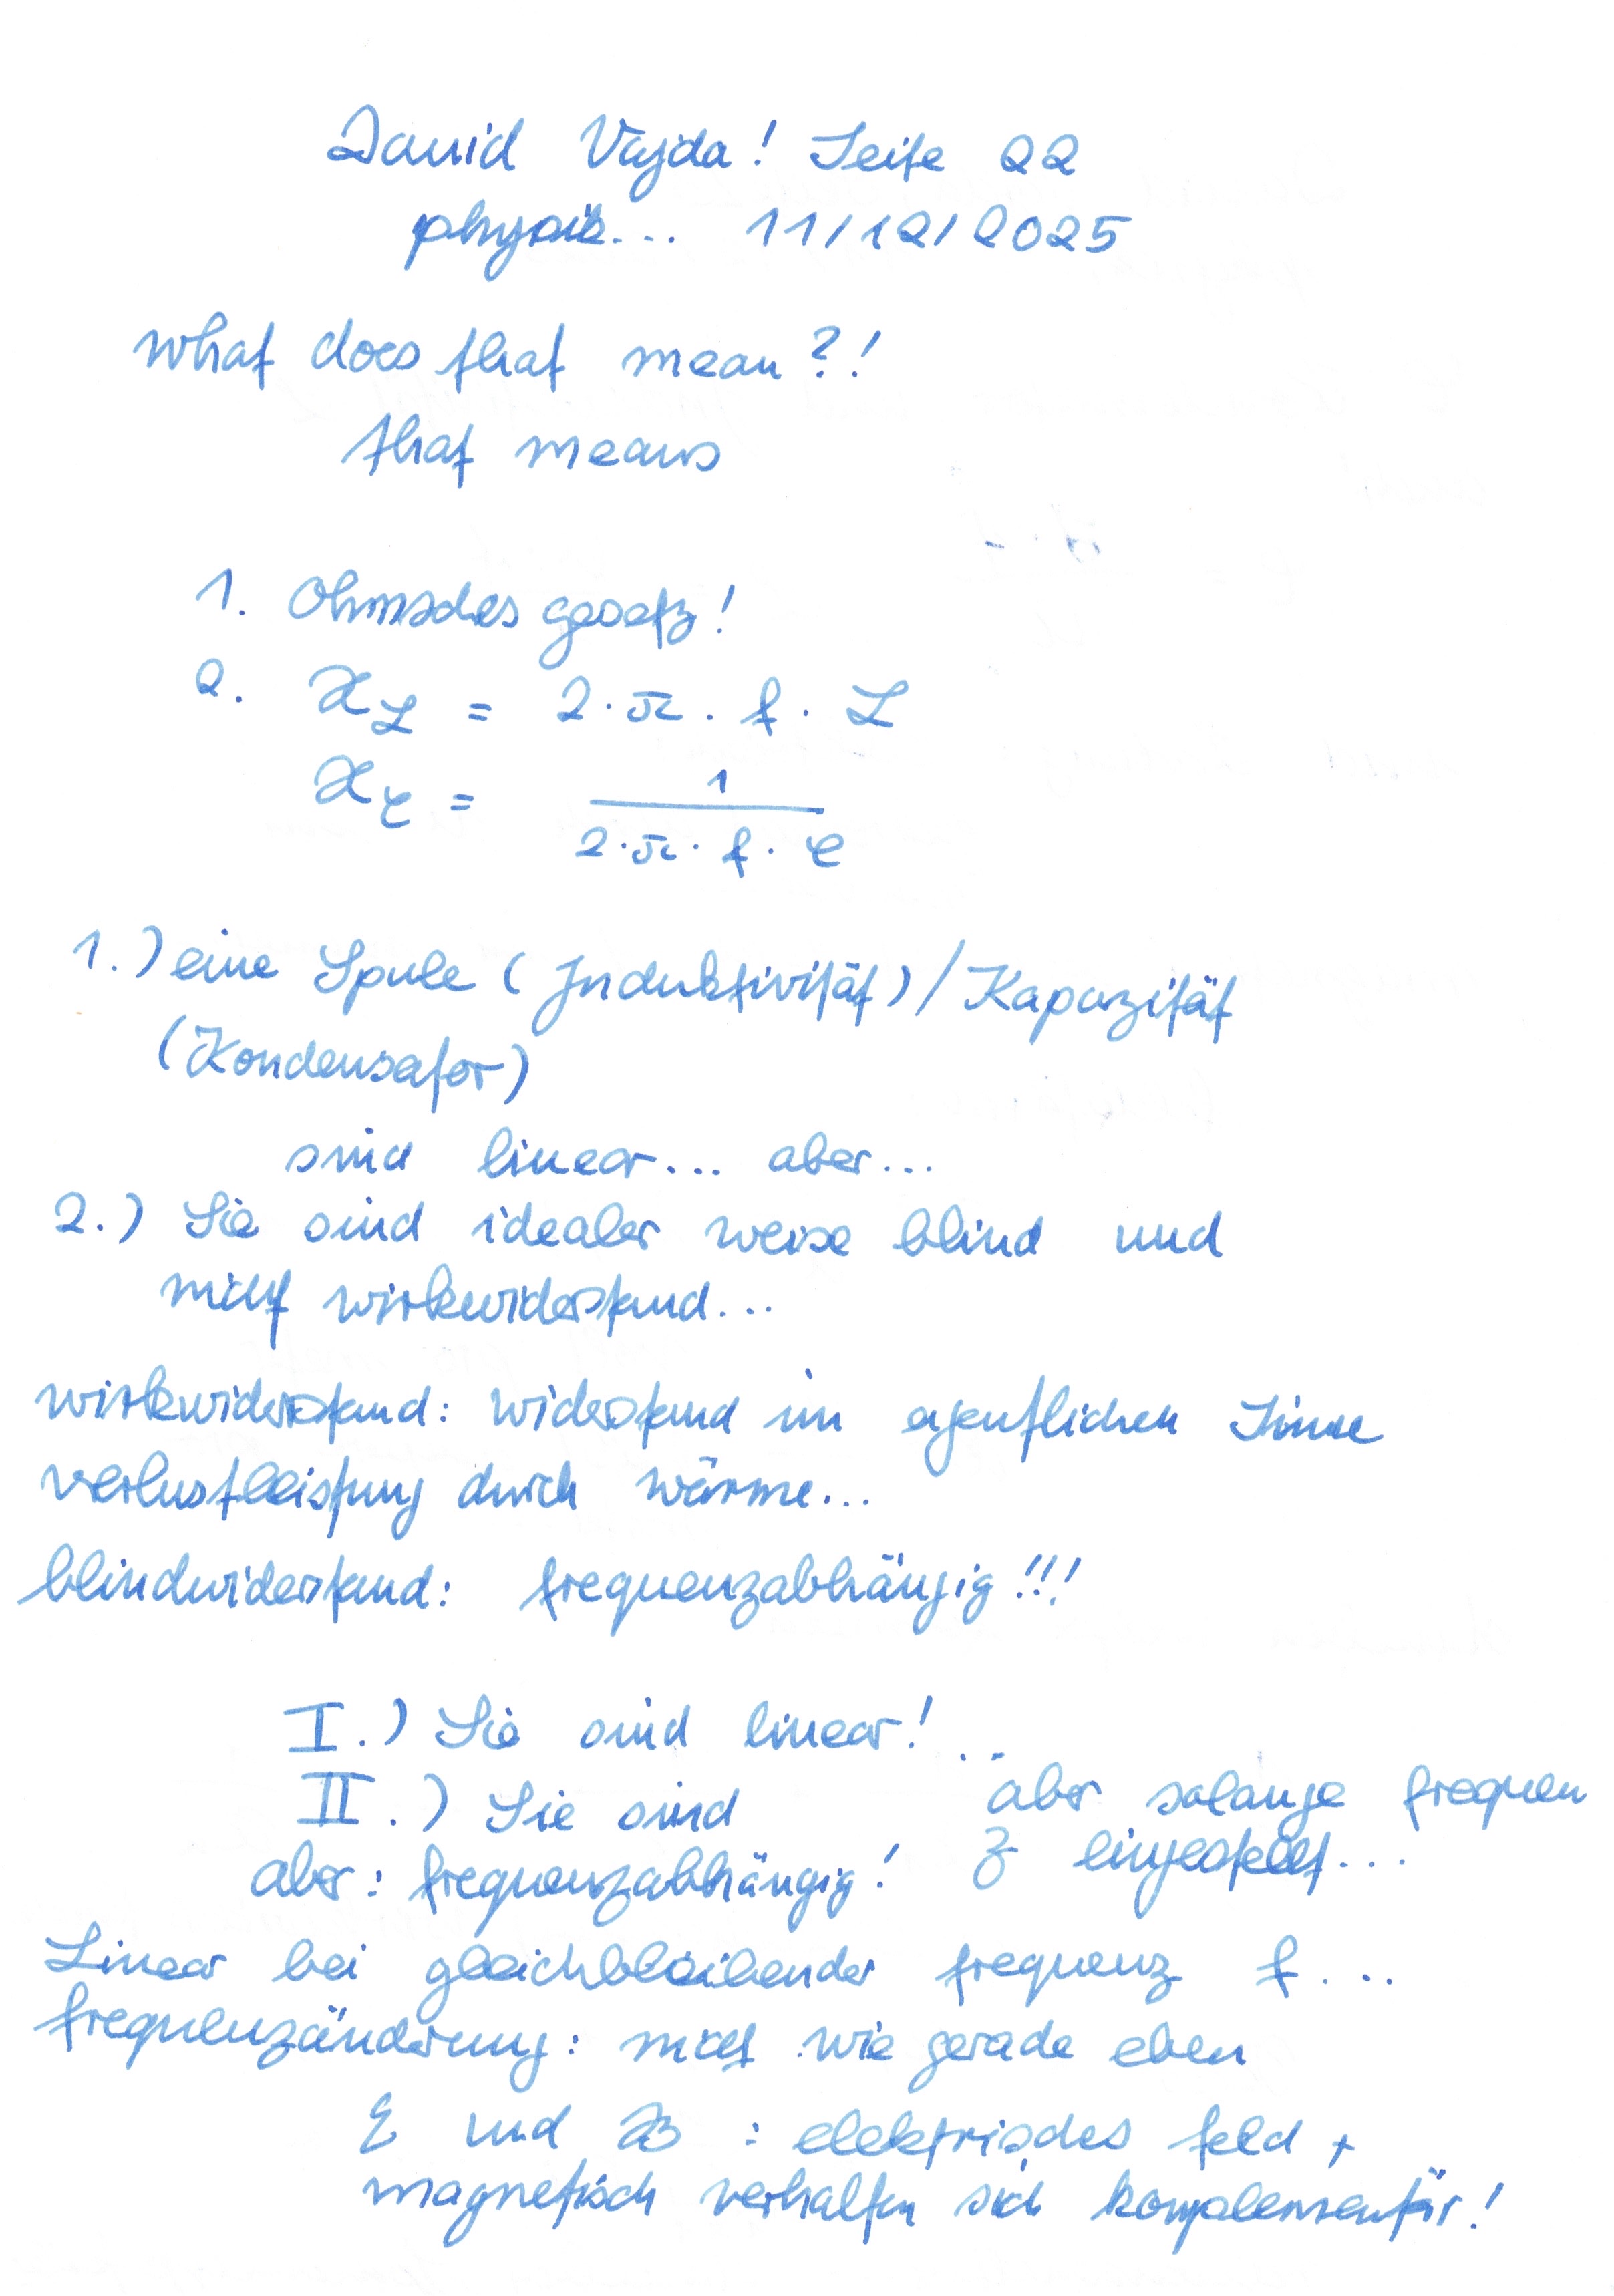 David Vajda! Seite 22
physik... 11/12/2025
what does that mean?!
that means
1. Ohmsches gesetz!
2. X_L = 2·π·f·L
X_C = 1 / (2·π·f·C)
1.) eine Spule (Induktivität)/Kapazität
(Kondensator)
sind linear... aber...
2.) Sie sind idealer weise blind und
nicht wirkwiderstand...
wirkwiderstand: widerstand im eigentlichen Sinne
verlustleistung durch wärme...
blindwiderstand: frequenzabhängig!!!
I.) Sie sind linear!...
II.) Sie sind
aber: frequenzabhängig!
aber solange frequen
z eingestellt...
Linear bei gleichbleibender frequenz f...
frequenzänderung: nicht wie gerade eben
E und B: elektrisches feld +
magnetisch verhalten sich komplementär!